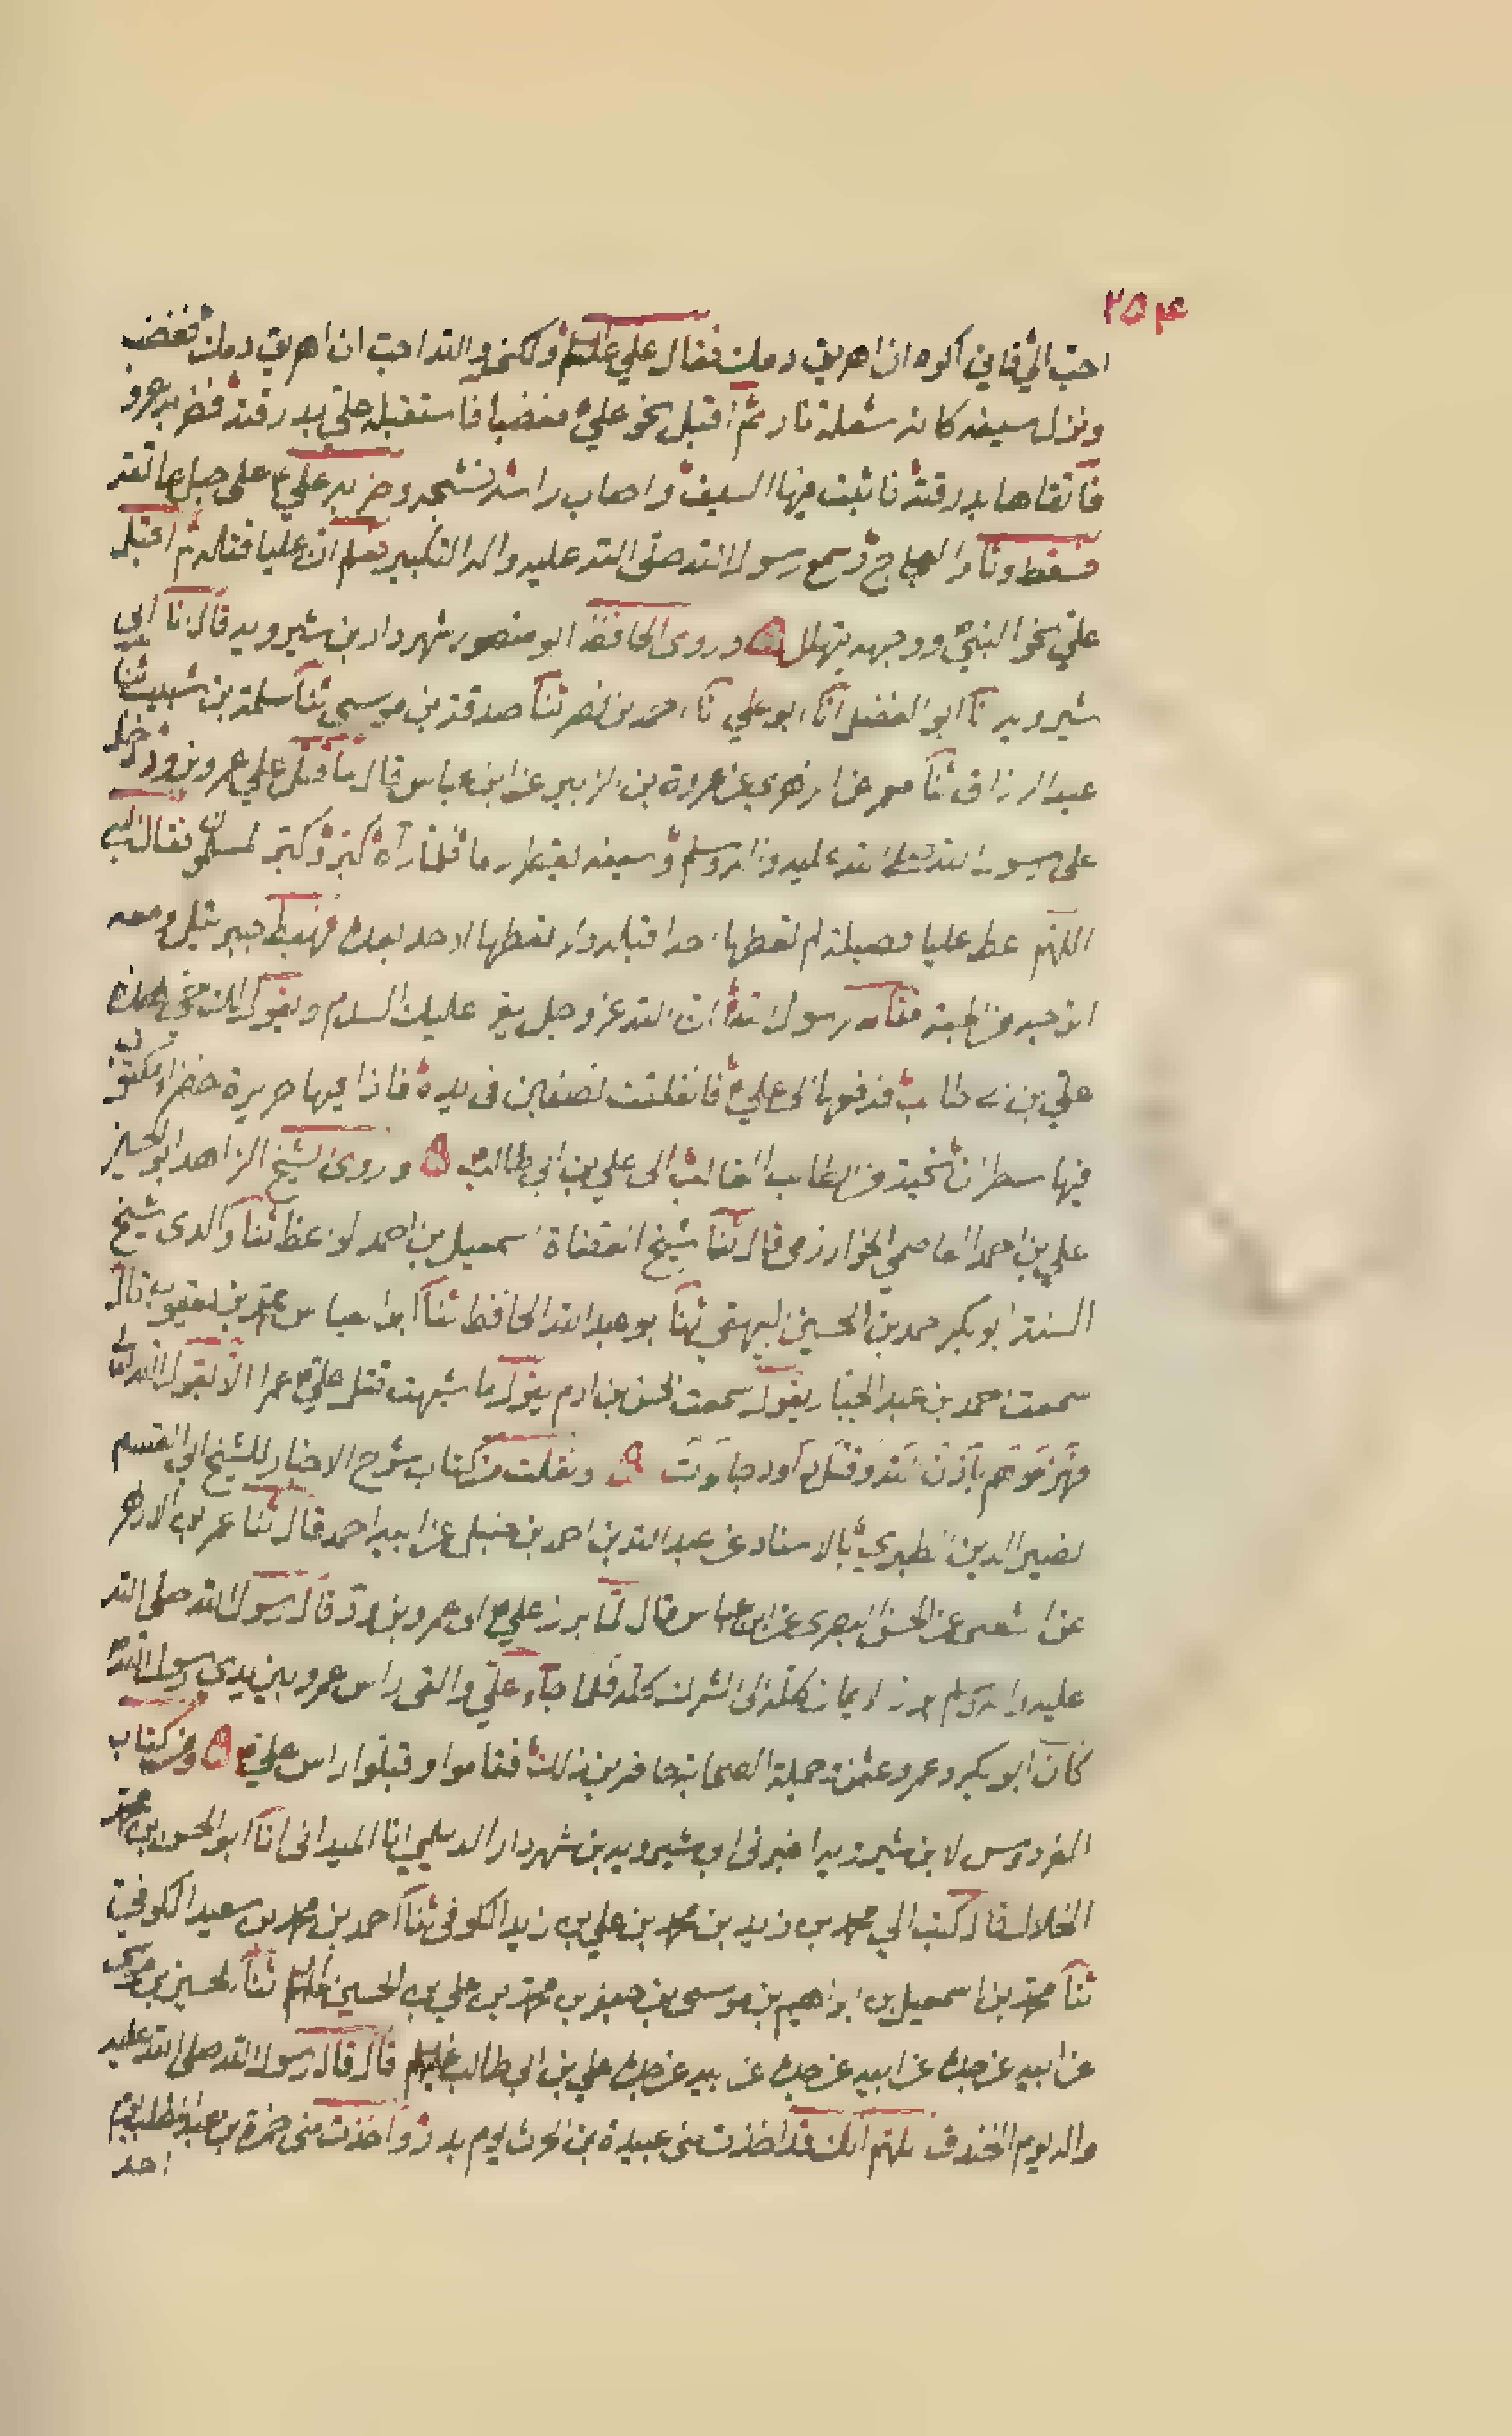 ٢٥٤
احبّ اليّ فاني اكره ان اهريق دمك فقال علي عليه السلم ولكني والله احبّ ان اهريق دمك فغضب
ونزل سيفه كانه شعلة نار ثم اقبل نحو علي مغضبا فاستقبله علي بدرقته فضربه عمرو
فاتقاها بدرقته فاثبت فيها السيف واصاب راسه فشجه وضربه علي على حبل عاتقه
فسقط وثار العجاج وسمع رسول الله صلى الله عليه واله التكبير فعلم ان عليا قتله ثم اقبل
علي نحو النبي ووجهه يتهلل ۵ وروى الحافظ ابو منصور شهردار بن شيرويه قال انا ابي
شيرويه انا ابو الفضل انا ابو علي نا احمد بن نصر ثنا صدقة بن موسى ثنا سلمة بن شبيب ثنا
عبد الرزاق ثنا معمر عن الزهري عن عروة بن الزبير عن ابن عباس قال لما قتل علي عمرو بن ود دخل
على رسول الله صلى الله عليه واله وسلم وسيفه يقطر دما فلما رآه كبّر وكبّر المسلمون فقال النبي
اللهم اعط عليا فضيلة لم تعطها احدا قبله ولا تعطها لاحد بعده فهبط جبرئيل ومعه
اترجة من الجنة فقال رسول الله ان الله عز وجل يقرء عليك السلام ويقول لك حيّ بهذه
علي بن ابي طالب فدفعها الى علي فانفلقت نصفين في يده فاذا فيها حريرة خضراء مكتوب
فيها سطران تحية من الطالب الغالب الى علي بن ابي طالب ۵ وروى الشيخ الزاهد ابو الحسن
علي بن احمد العاصمي الخوارزمي قال ثنا شيخ القضاة اسمعيل بن احمد الواعظ ثنا والدي شيخ
السنة ابو بكر احمد بن الحسين البيهقي ثنا ابو عبد الله الحافظ ثنا ابو العباس محمد بن يعقوب قال
سمعت احمد بن عبد الجبار يقول سمعت الحسن بن ادم يقول ما شبهت قتل علي عمرا الا بقول الله تعالى
فهزموهم باذن الله وقتل داود جالوت ۵ ونقلت من كتاب شرح الاخبار للشيخ ابي القسم
نصير الدين الطبري بالاسناد عن عبد الله بن احمد بن حنبل عن ابيه احمد قال ثنا عمر بن الازهر
عن اشعث عن الحسن البصري عن ابن عباس قال لما برز علي الى عمرو بن ود قال رسول الله صلى الله
عليه واله وسلم برز الايمان كله الى الشرك كله فلما جاء علي والقى راس عمرو بين يدي رسول الله
كان ابو بكر وعمر وعثمن وجملة الصحابة حاضرين ذلك فقاموا وقبلوا راس علي ۵ ومن كتاب
الفردوس لابن شيرويه اخبرني ابي شيرويه بن شهردار الديلمي انا الميداني انا ابو الحسن بن محمد
الخلال قال كتب الي محمد بن زيد بن محمد بن علي بن زيد الكوفي ثنا احمد بن محمد بن سعيد الكوفي
ثنا محمد بن اسمعيل بن ابراهيم بن موسى بن جعفر بن محمد بن علي بن الحسين عليهم السلم ثنا الحسين بن موسى
عن ابيه عن جده عن ابيه عن جده عن ابيه عن جده علي بن ابي طالب عليهم السلم قال قال رسول الله صلى الله عليه
واله يوم الخندق اللهم انك قد اخذت مني عبيدة بن الحرث يوم بدر واخذت مني حمزة بن عبد المطلب يوم
احد